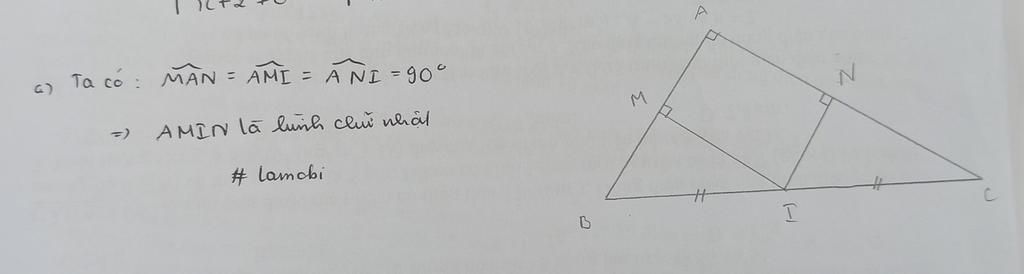 a) Ta có : MAN = AMI = ANI = 90°
=> AMIN là hình chữ nhật
# lamobi
A
M
N
B
I
C